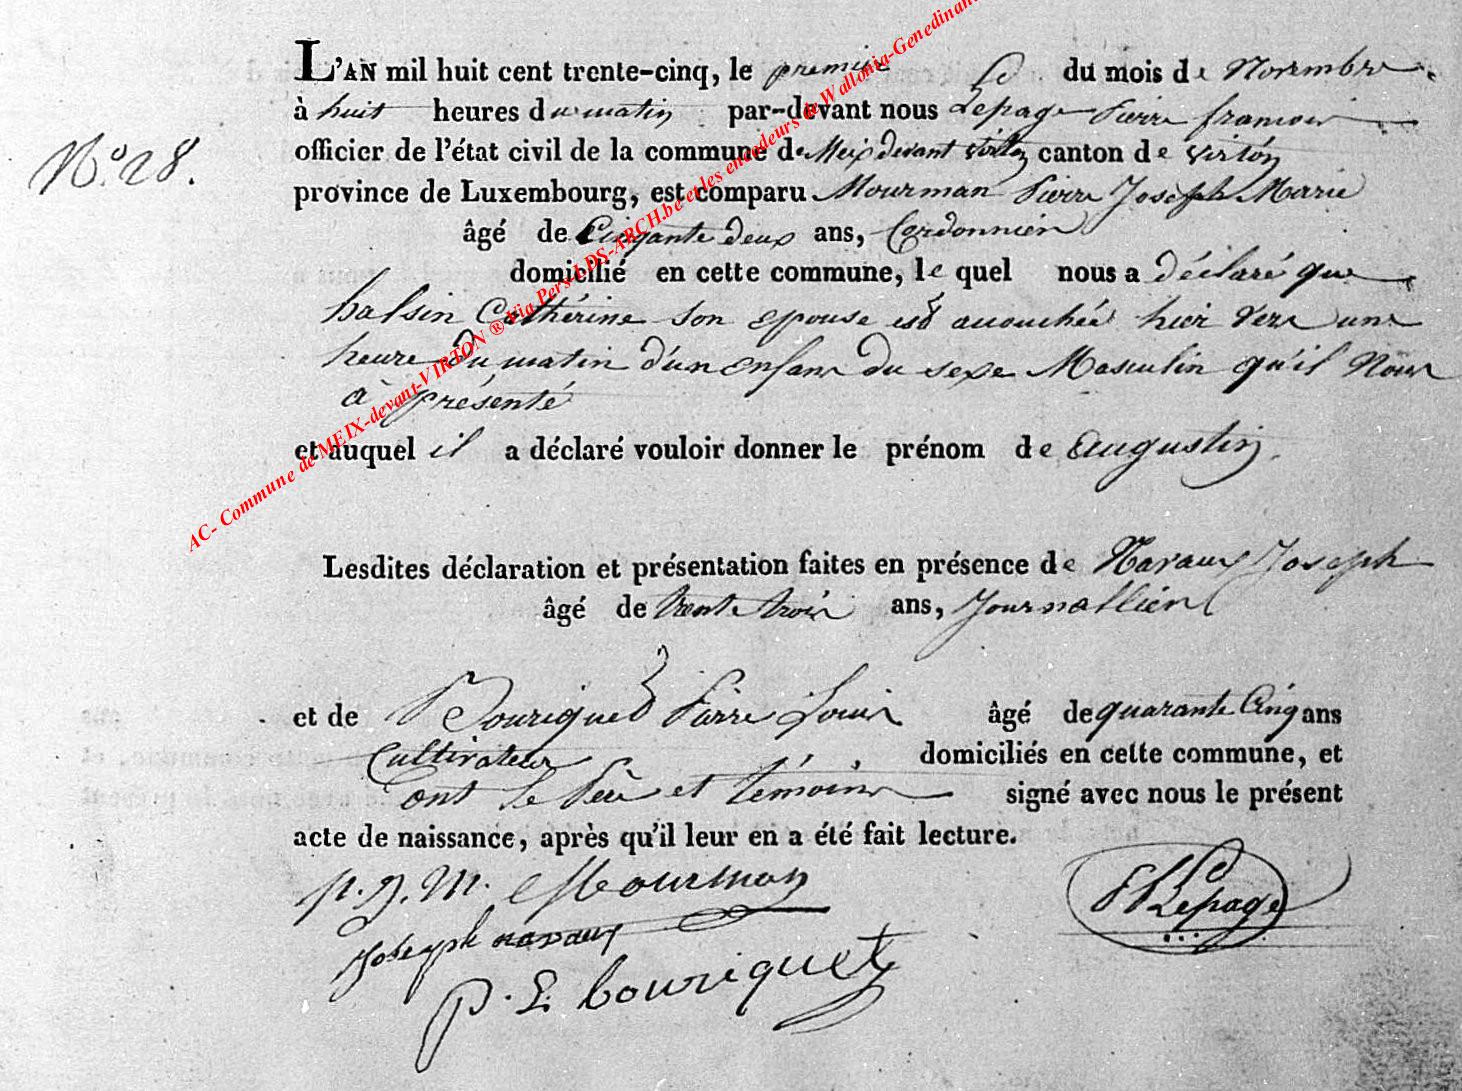 L'AN mil huit cent trente-cinq, le premier du mois de Novembre
à huit heures du matin par-devant nous Lepage Pierre françois
officier de l'état civil de la commune de Meix devant Virton canton de Virton
N.° 28.
province de Luxembourg, est comparu Mourman Pierre Joseph Marie
âgé de Cinqante deux ans, Cordonnier
domicilié en cette commune, le quel nous a déclaré que
halsin Cathérine son epouse est accouchée hier vers une
heure du matin d'un enfant du sexe Masculin qu'il Nous
à présenté
et auquel il a déclaré vouloir donner le prénom de Augustin.
AC- Commune de MEIX-devant-VIRTON ® Via Pers-LDS-ARCH.be et les encodeurs de Wallonia-Genedinant
Lesdites déclaration et présentation faites en présence de Navaux Joseph
âgé de trente trois ans, Journallier
et de Bouriquet Pierre Louis âgé de quarante Cinq ans
Cultivateur domiciliés en cette commune, et
ont le Père et témoins signé avec nous le présent
acte de naissance, après qu'il leur en a été fait lecture.
p. J. M. Mourman
Lepage
Joseph navaux
P. L bouriquet